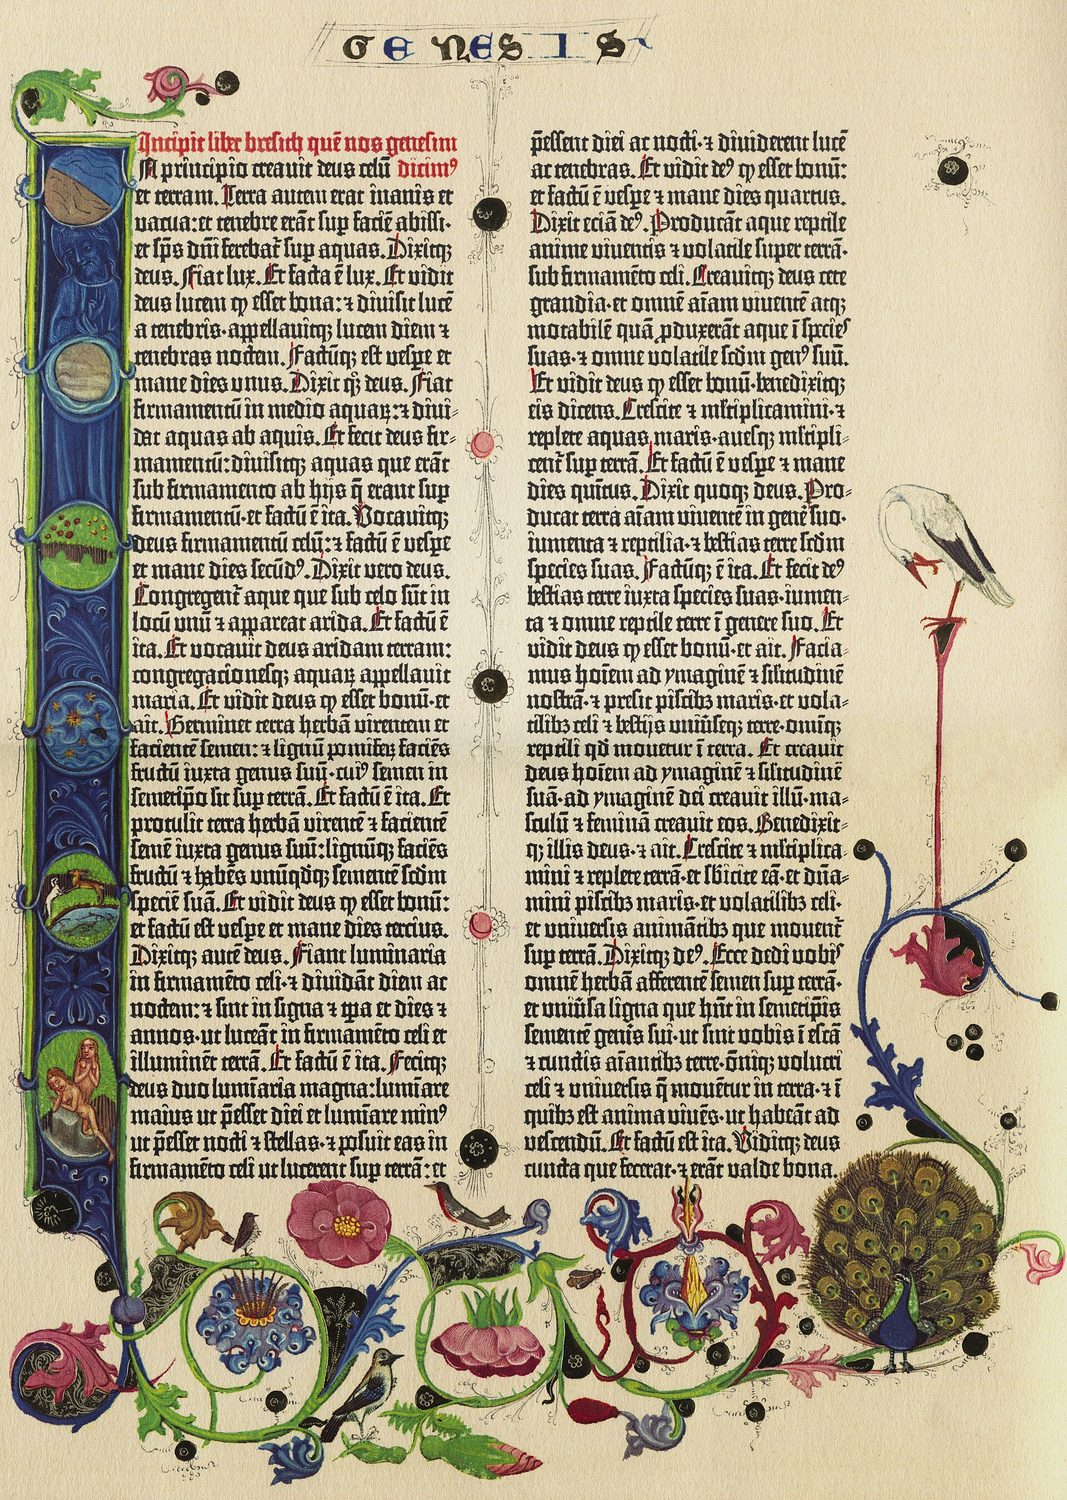 GENESIS
Incipit liber bresich quē nos genesim
In principio creauit deus celū dicim⁹
et terram. Terra autem erat inanis et
vacua: et tenebre erāt sup faciē abissi·
et sp̄s dn̄i ferebat̄ sup aquas. Dixitqꝫ
deus. Fiat lux. Et facta ē lux. Et vidit
deus lucem qꝫ esset bona: ⁊ diuisit lucē
a tenebris· appellauitqꝫ lucem diem ⁊
tenebras noctem. Factūqꝫ est vespe et
mane dies vnus. Dixit qꝫ deus. Fiat
firmamentū in medio aquaꝝ: ⁊ diui-
dat aquas ab aquis. Et fecit deus fir-
mamentū: diuisitqꝫ aquas que erāt
sub firmamento ab hijs q̄ erant sup
firmamentū· et factū ē ita. Vocauitqꝫ
deus firmamentū celū: ⁊ factū ē vespe
et mane dies secūd⁹. Dixit vero deus.
Congregent̄ aque que sub celo sūt in
locū vnū ⁊ appareat arida. Et factū ē
ita. Et vocauit deus aridam terram:
congregacionesqꝫ aquaꝝ appellauit
maria. Et vidit deus qꝫ esset bonū· et
ait. Germinet terra herbā virentem et
facientē semen: ⁊ lignū pomifeꝝ faciēs
fructū iuxta genus suū· cui⁹ semen in
semetip̄o sit sup terrā. Et factū ē ita. Et
protulit terra herbā virentē ⁊ facientē
semē iuxta genus suū: lignūqꝫ faciēs
fructū ⁊ habēs vnūqd̄qꝫ sementē scdm
speciē suā. Et vidit deus qꝫ esset bonū:
et factū est vespe et mane dies tercius.
Dixitqꝫ autē deus. Fiant luminaria
in firmamēto celi· ⁊ diuidāt diem ac
noctem: ⁊ sint in signa ⁊ tp̄a et dies ⁊
annos· ut luceāt in firmamēto celi et
illuminēt terrā. Et factū ē ita. Fecitqꝫ
deus duo lumīaria magna: lumīare
maius ut p̄esset diei et lumīare min⁹
ut p̄esset nocti ⁊ stellas· ⁊ posuit eas in
firmamēto celi ut lucerent sup terrā: et
p̄essent diei ac nocti· ⁊ diuiderent lucē
ac tenebras. Et vidit de⁹ qꝫ esset bonū:
et factū ē vespe ⁊ mane dies quartus.
Dixit eciā de⁹. Producāt aque reptile
anime viuentis ⁊ volatile super terrā·
sub firmamēto celi. Creauitqꝫ deus cete
grandia· et omnē aīam viuentē atqꝫ
motabilē quā ꝓduxerāt aque ī species
suas· ⁊ omne volatile scdm gen⁹ suū.
Et vidit deus qꝫ esset bonū· benedixitqꝫ
eis dicens. Crescite ⁊ mltiplicamini· ⁊
replete aquas maris· auesqꝫ mltipli-
cent̄ sup terrā. Et factū ē vespe ⁊ mane
dies quītus. Dixit quoqꝫ deus. Pro-
ducat terra aīam viuentē in genē suo·
iumenta ⁊ reptilia· ⁊ bestias terre scdm
species suas. Factūqꝫ ē ita. Et fecit de⁹
bestias terre iuxta species suas· iumen-
ta ⁊ omne reptile terre ī genere suo. Et
vidit deus qꝫ esset bonū· et ait. Facia-
mus hoīem ad ymaginē ⁊ silitudinē
nostrā· ⁊ presit piscibꝫ maris· et vola-
tilibꝫ celi ⁊ bestijs vniūseqꝫ terre· omīqꝫ
reptili qd̄ mouetur ī terra. Et creauit
deus hoīem ad ymaginē ⁊ silitudinē
suā· ad ymaginē dei creauit illū· ma-
sculū ⁊ feminā creauit eos. Benedixit-
qꝫ illis deus· ⁊ ait. Crescite ⁊ mltiplica-
mini ⁊ replete terrā· et sbicite eā· et dn̄a-
mini piscibꝫ maris· et volatilibꝫ celi·
et vniuersis animātibꝫ que mouent̄
sup terrā. Dixitqꝫ de⁹. Ecce dedi vobis
omnē herbā afferentē semen sup terrā·
et vniūsa ligna que hn̄t in semetip̄is
sementē genīs sui· ut sint vobis ī escā
⁊ cunctis aīantibꝫ terre· ōniqꝫ volucri
celi ⁊ vniuersis q̄ mouētur in terra· ⁊ ī
quibꝫ est anima viuēs· ut habeāt ad
vescendū. Et factū est ita. Viditqꝫ deus
cuncta que fecerat· ⁊ erāt valde bona.